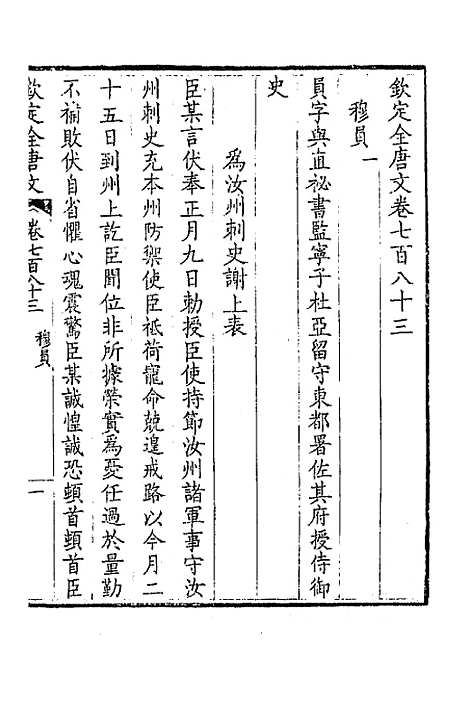 欽定全唐文卷七百八十三
穆員一
員字與直祕書監寧子杜亞留守東都署佐其府授侍御
史
爲汝州刺史謝上表
臣某言伏奉正月九日勅授臣使持節汝州諸軍事守汝
州刺史充本州防禦使臣祗荷寵命兢遑戒路以今月二
十五日到州上訖臣聞位非所據榮實爲憂任過於量勤
不補敗伏自省懼心魂震驚臣某誠惶誠恐頓首頓首臣
欽定全唐文 卷七百八十三 穆員 一